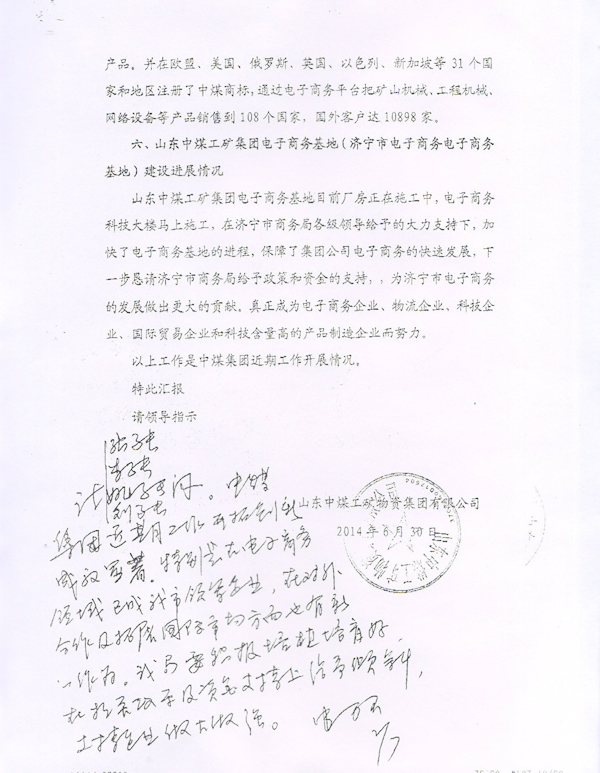 产品。并在欧盟、美国、俄罗斯、英国、以色列、新加坡等 31 个国
家和地区注册了中煤商标,通过电子商务平台把矿山机械、工程机械、
网络设备等产品销售到 108 个国家,国外客户达 10898 家。
六、山东中煤工矿集团电子商务基地(济宁市电子商务电子商务
基地)建设进展情况
山东中煤工矿集团电子商务基地目前厂房正在施工中,电子商务
科技大楼马上施工,在济宁市商务局各级领导给予的大力支持下,加
快了电子商务基地的进程,保障了集团公司电子商务的快速发展,下
一步恳请济宁市商务局给予政策和资金的支持,,为济宁市电子商务
的发展做出更大的贡献,真正成为电子商务企业、物流企业、科技企
业、国际贸易企业和科技含量高的产品制造企业而努力。
以上工作是中煤集团近期工作开展情况。
特此汇报
请领导指示
阅。中煤
山东中煤工矿物资集团有限公司
2014 年 6 月 30 日
集团近期工作开拓创新
成效显著。特别是在电子商务
领域已成我市领军企业,在对外
合作及拓展国际市场方面也有新
作为。我局要积极培植培育好
政策及资金支持上给予倾斜,
支持企业做大做强。